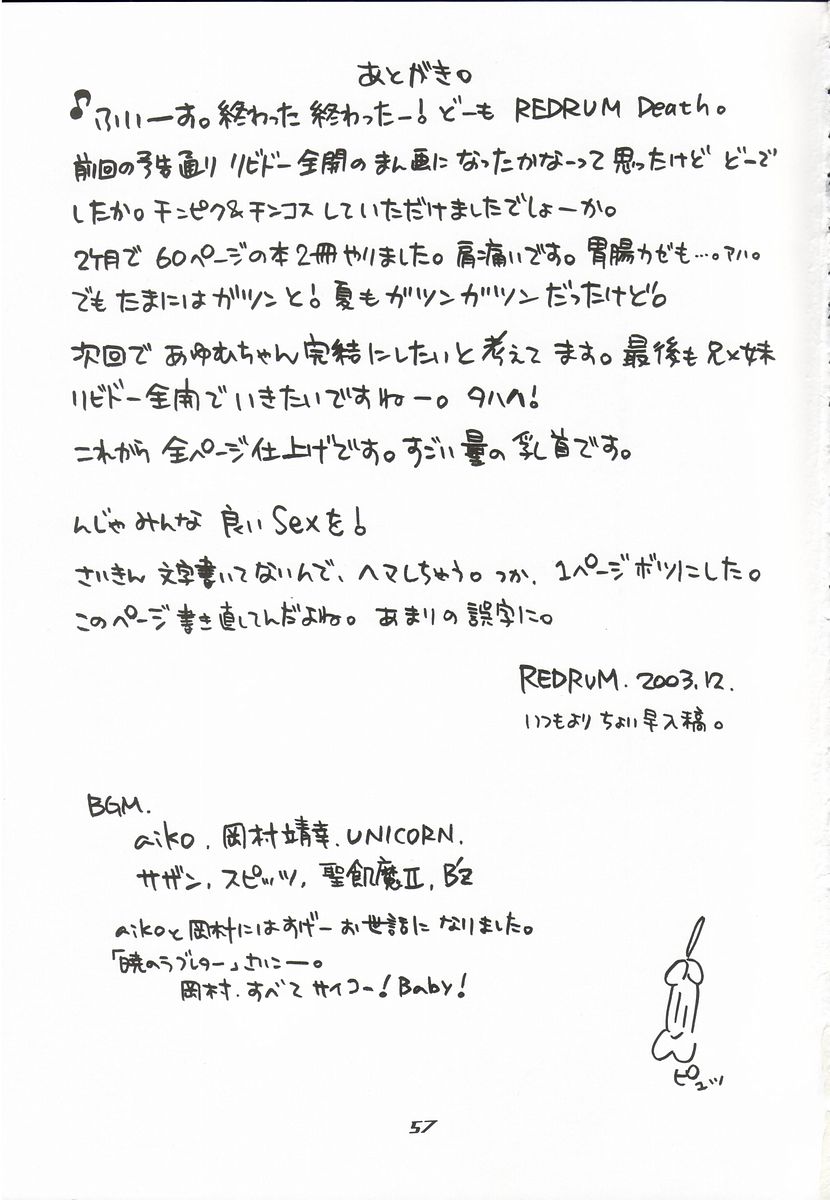 あとがき。
♪ふいーす。終わった終わったー!どーも REDRUM Death。
前回の予告通り リビドー全開のまん画になったかなーって思ったけど どーで
したか。チンピク&チンコスしていただけましたでしょーか。
2ケ月で 60ページの本2冊やりました。肩痛いです。胃腸カゼも…。アハ。
でもたまにはガツンと!夏もガツンガツンだったけど。
次回で あゆむちゃん完結にしたいと考えてます。最後も兄×妹
リビドー全開でいきたいですねー。タハハ!
これから 全ページ仕上げです。すごい量の乳首です。
んじゃみんな 良いSexを!
さいきん 文字書いてないんで、ヘマしちゃう。つか、1ページボツにした。
このページ書き直してんだよね。 あまりの誤字に。
REDRUM. 2003.12.
いつもより ちょい早入稿。
BGM.
aiko, 岡村靖幸, UNICORN,
サザン, スピッツ, 聖飢魔II, B'z
aikoと岡村にはすげーお世話になりました。
「暁のラブレター」さいこー。
岡村、すべてサイコー!Baby!
ピュッ
57